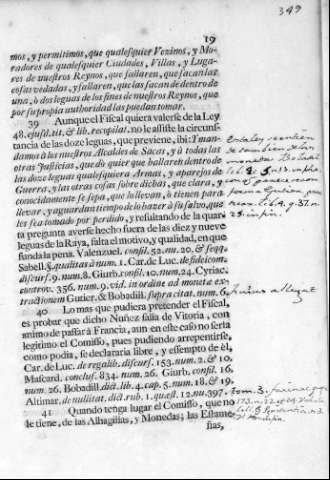 349
19
mos, y permitimos, que qualesquier Vezinos, y Mo-
radores de qualesquier Ciudades, Villas, y Luga-
res de nuestros Reynos, que fallaren, que sacan las
cosas vedadas, y fallaren, que las sacan de dentro de
una, ò dos leguas de los fines de nuestros Reynos, que
por su propia authoridad las puedan tomar.
39 Aunque el Fiscal quiera valerse de la Ley
48. ejusd. tit. & lib. recopilat. no le assiste la circunf-
tancia de las doze leguas, que previene, ibi: Y man-
damos à los nuestros Alcaldes de Sacas, y à todas las
otras Justicias, que do quier que hallaren dentro de
las doze leguas qualesquiera Armas, y aparejos de
Guerra, y las otras cosas sobre dichas, que clara, y
conocidamente se sepa, que lo llevan, ò tienen para
llevar, y aguardan tiempo de lo hazer à su salvo, que
les sea tomado por perdido, y resultando de la quar-
ta pregunta averse hecho fuera de las diez y nueve
leguas de la Raya, falta el motivo, y qualidad, en que
funda la pena. Valenzuel. consil. 52. nu. 20. & seqq.
Sabell. §. qualitas à num. 1. Car. de Luc. de fideicom.
discurs. 9. num. 8. Giurb. consil. 10. num. 24. Cyriac.
controv. 356. num. 9. vid. in ordine ad moneta ex-
tractionem Gutier. & Bobadill. supra citat. num. 6.
40 Lo mas que pudiera pretender el Fiscal,
es probar que dicho Nuñez salia de Vitoria, con
animo de passar à Francia, aun en este caso no serìa
legitimo el Comisso, pues pudiendo arrepentirse,
como podia, se declararìa libre, y essempto de èl,
Car. de Luc. de regalib. discurs. 153. num. 2. & 10.
Mascard. conclus. 834. num. 26. Giurb. consil. 16.
num. 26. Bobadill. dict. lib. 4. cap. 5. num. 18. & 19.
Altimar. de nullitat. dict. rub. 1. quæst. 12. nu. 397.
41 Quando tenga lugar el Comisso, que no
le tiene, de las Alhagillas, y Monedas; las Estame-
ñas,